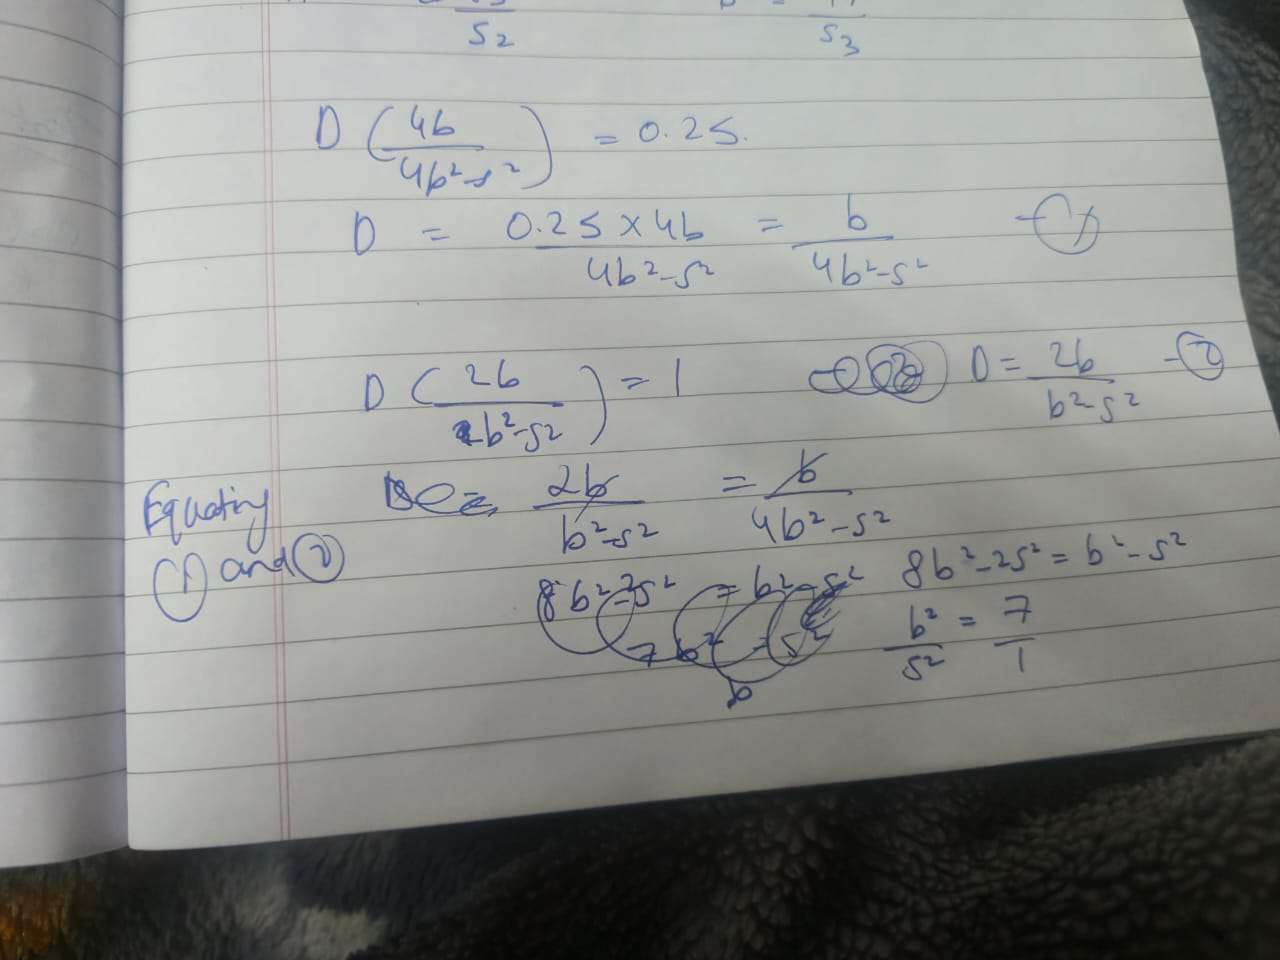 S2 S3
D (4b / 4b²-s²) = 0.25.
D = 0.25 x 4b / 4b²-s² = b / 4b²-s² - 1
D (2b / b²-s²) = 1 D = 2b / b²-s² - 2
Equating 2b / b²-s² = b / 4b²-s²
1 and 2
8b²-2s² = b²-s² 8b²-2s² = b²-s²
7b² = s² b² / s² = 7 / 1
b